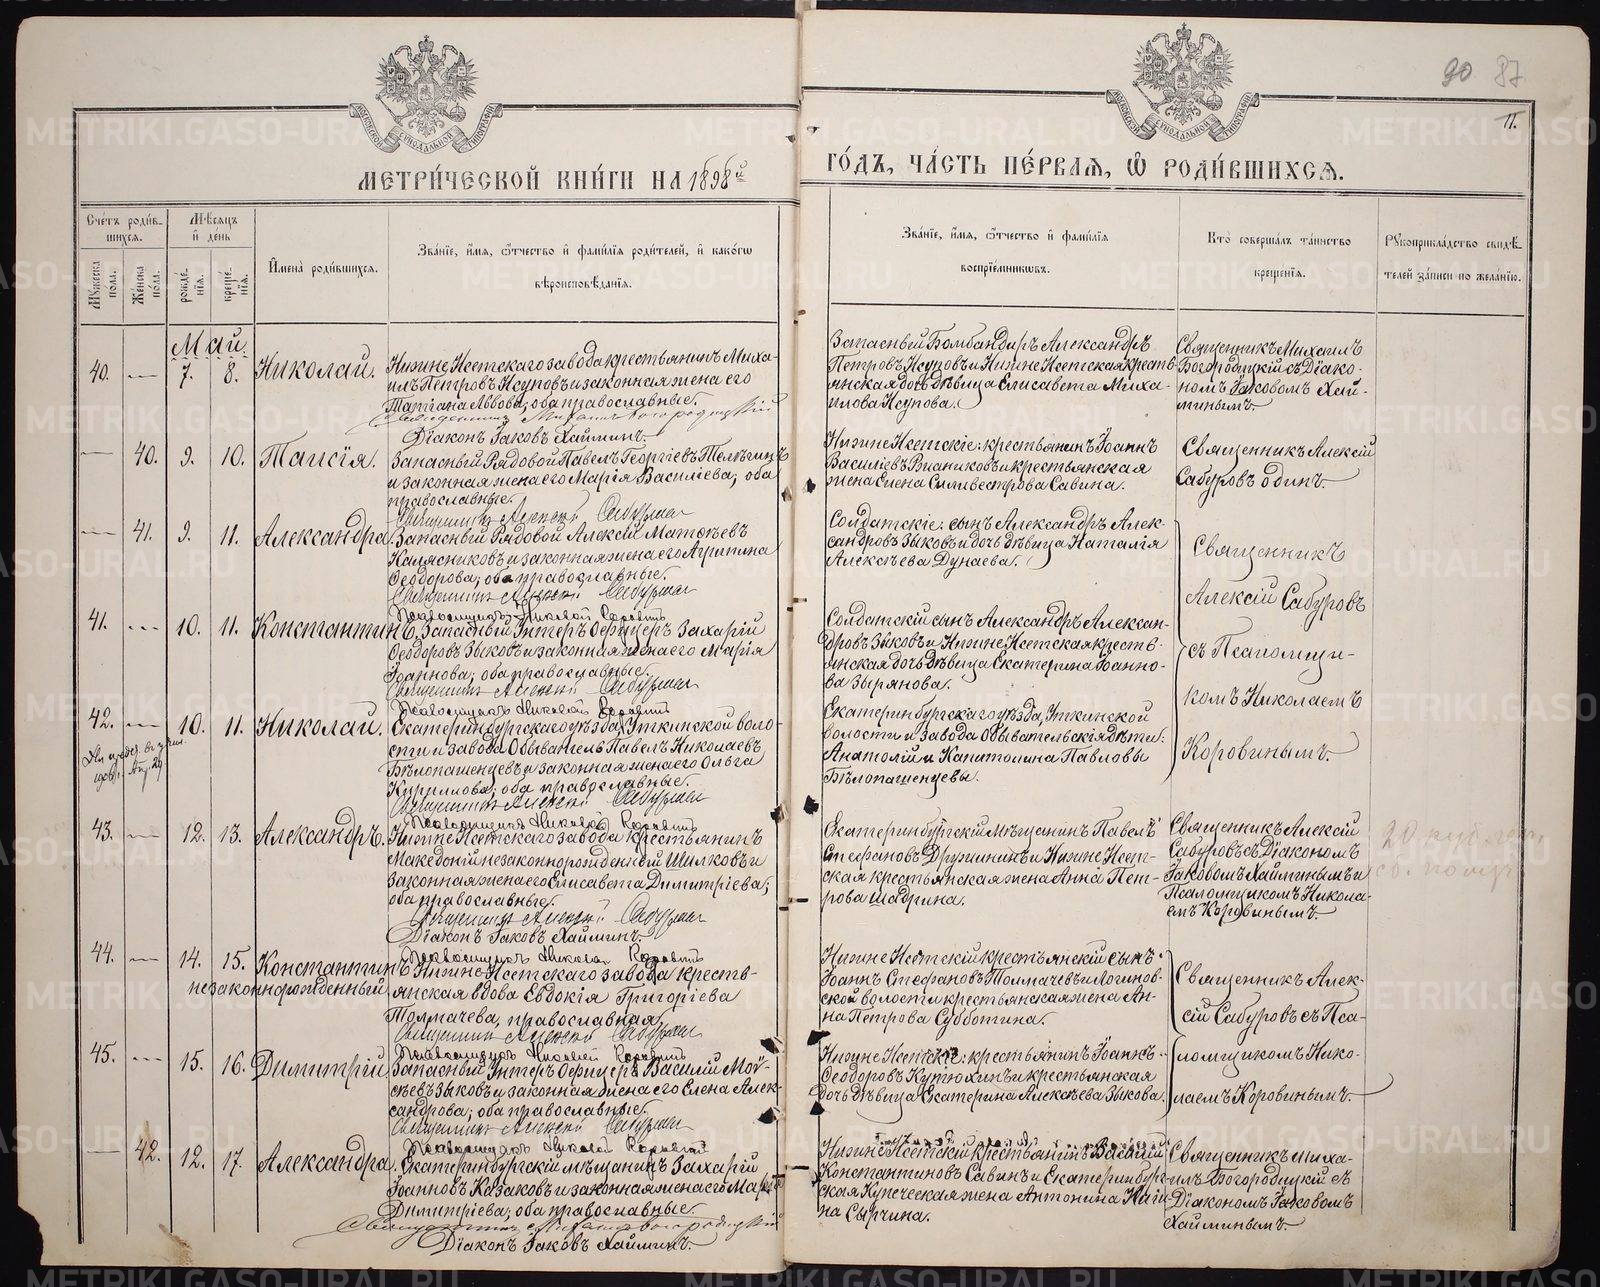 90 87
11.
МОСКОВСКОЙ СѴНОДАЛЬНОЙ ТИПОГРАФІИ
МОСКОВСКОЙ СѴНОДАЛЬНОЙ ТИПОГРАФІИ
МЕТРИ́ЧЕСКОЙ КНИ́ГИ НА 1898й
ГО́ДЪ, ЧА́СТЬ ПЕ́РВАѦ, Ѡ҆ РОДИ́ВШИХСѦ.
Сче́тъ роди́вшихсѧ.
Мѹ́жеска по́ла.
Же́нска по́ла.
Мѣ́сѧцъ и҆ де́нь
рожде́нїѧ.
креще́нїѧ.
И҆мена̀ роди́вшихсѧ.
Зва́нїе, и҆́мѧ, ѻ҆́тчество и҆ фами́лїѧ роди́телей, и҆ како́гѡ
вѣроисповѣ́данїѧ.
Зва́нїе, и҆́мѧ, ѻ҆́тчество и҆ фами́лїѧ
воспрїе́мникѡвъ.
Кто̀ соверша́лъ та́инство
креще́нїѧ.
Рꙋкоприкла́дство свидѣ́-
телей за́писи по жела́нїю.
Май.
40. — 7. 8. Николай.
Нижне Исетскаго завода крестьянинъ Миха-
илъ Петровъ Ясуповъ и законная жена его
Татiана Львова, оба православные.
Священникъ Михаилъ Богородицкiй
Дiаконъ Iаковъ Хайминъ.
Запасный Бомбандиръ Александръ
Петровъ Ясуповъ и Нижне Исетская кресть-
янская дочь дѣвица Елисавета Миха-
илова Ясупова.
Священникъ Михаилъ
Богородицкiй съ Дiако-
номъ Iаковомъ Хай-
минымъ.
— 40. 9. 10. Таисiя.
Запасный Рядовой Павелъ Георгiевъ Телѣгинъ
и законная жена его Марiя Василiева, оба
православные.
Священникъ Алексiй Сабуровъ
Нижне Исетскiе: крестьянинъ Iоаннъ
Василiевъ и крестьянская
жена Елена Силивестрова Савина.
Священникъ Алексiй
Сабуровъ одинъ.
— 41. 9. 11. Александра.
Запасный Рядовой Алексiй Матѳеевъ
Калясниковъ и законная жена его Агрипина
Ѳеодорова, оба православные.
Священникъ Алексiй Сабуровъ
Псаломщикъ Николай Коровинъ
Солдатскiе: сынъ Александръ Алек-
сандровъ Зыковъ и дочь дѣвица Наталiя
Алексѣева Дунаева.
Священникъ
Алексiй Сабуровъ
съ Псаломщи-
комъ Николаемъ
Коровинымъ.
41. — 10. 11. Константинъ.
Запасный Унтеръ Офицеръ Захарiй
Ѳеодоровъ Зыковъ и законная жена его Марiя
Iоаннова, оба православные.
Священникъ Алексiй Сабуровъ
Псаломщикъ Николай Коровинъ
Солдатскiй сынъ Александръ Алексан-
дровъ Зыковъ и Нижне Исетская кресть-
янская дочь дѣвица Екатерина Iоанно-
ва Зырянова.
42. — 10. 11. Николай.
Екатеринбургскаго уѣзда, Уткинской воло-
сти и завода Обыватель Павелъ Николаевъ
Бѣлопашенцевъ и законная жена его Ольга
Кириллова, оба православные.
Священникъ Алексiй Сабуровъ
Псаломщикъ Николай Коровинъ
Екатеринбургскаго уѣзда, Уткинской
волости и завода Обывательскiя дѣти:
Анатолiй и Капитолина Павловы
Бѣлопашенцевы.
43. — 12. 13. Александръ.
Нижне Исетскаго завода крестьянинъ
Македонiй незаконнорожденный Шилковъ и
законная жена его Елисавета Димитрiева,
оба православные.
Священникъ Алексiй Сабуровъ
Дiаконъ Iаковъ Хайминъ.
Псаломщикъ Николай Коровинъ
Екатеринбургскiй мѣщанинъ Павелъ
Стефановъ Дружининъ и Нижне Исет-
ская крестьянская жена Анна Пет-
рова Шадрина.
Священникъ Алексiй
Сабуровъ съ Дiакономъ
Iаковомъ Хайминымъ и
Псаломщикомъ Никола-
емъ Коровинымъ.
44. — 14. 15. Константинъ
незаконнорожденный
Нижне Исетскаго завода кресть-
янская вдова Евдокiя Григорiева
Толмачева, православная.
Священникъ Алексiй Сабуровъ
Псаломщикъ Николай Коровинъ
Нижне Исетскiй крестьянскiй сынъ
Iоаннъ Стефановъ Толмачевъ и Логинов-
ской волости крестьянская жена Ан-
на Петрова Субботина.
Священникъ Алек-
сiй Сабуровъ съ Пса-
ломщикомъ Нико-
лаемъ Коровинымъ.
45. — 15. 16. Димитрiй
Запасный Унтеръ Офицеръ Василiй Мои-
сѣевъ Зыковъ и законная жена его Елена Алек-
сандрова, оба православные.
Священникъ Алексiй Сабуровъ
Псаломщикъ Николай Коровинъ
Нижне Исетскiе: крестьянинъ Iоаннъ
Ѳеодоровъ Кутюхинъ и крестьянская
дочь дѣвица Екатерина Алексѣева Зыкова.
— 42. 12. 17. Александра.
Екатеринбургскiй мѣщанинъ Захарiй
Iоанновъ Казаковъ и законная жена его Марiя
Димитрiева, оба православные.
Священникъ Михаилъ Богородицкiй
Дiаконъ Iаковъ Хайминъ.
Нижне Исетскiй крестьянинъ Василiй
Константиновъ Савинъ и Екатеринбург-
ская Купеческая жена Антонина
на Сырчина.
Священникъ Миха-
илъ Богородицкiй съ
Дiакономъ Iаковомъ
Хайминымъ.
METRIKI.GASO-URAL.RU